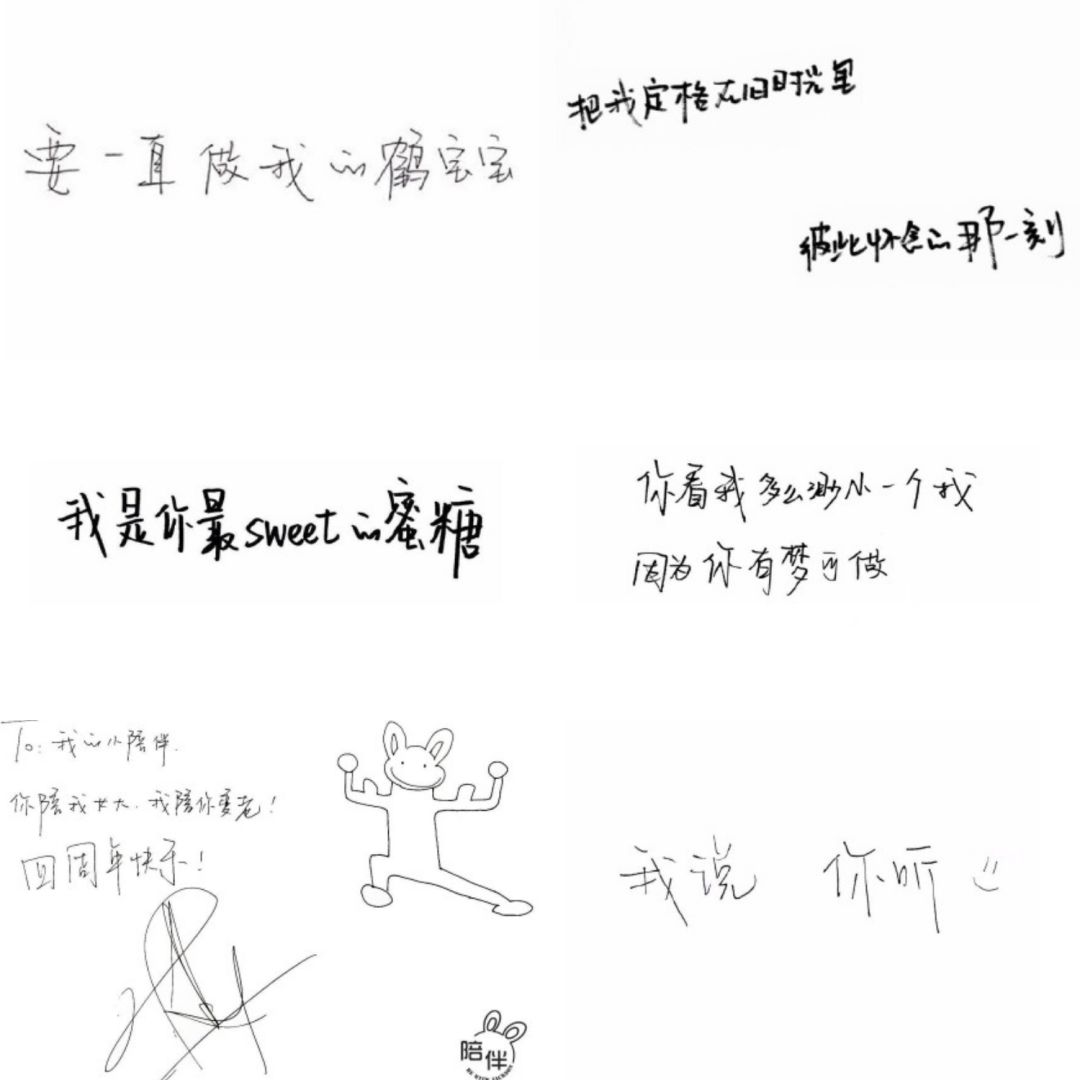 要一直做我的鹤宝宝
把我定格在旧时光里
彼此怀念的那一刻
我是你最sweet的蜜糖
你看我多么渺小一个我
因为你有梦可做
To: 我的小陪伴.
你陪我长大,我陪你变老!
四周年快乐!
陪伴
我说 你听